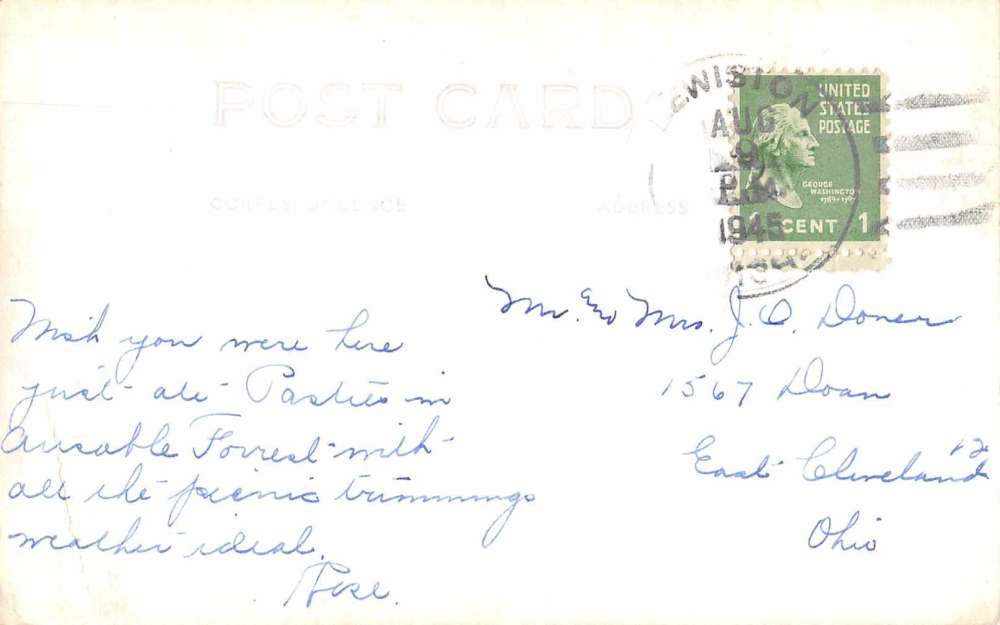 POST CARD
CORRESPONDENCE
ADDRESS
EWISTON
AUG
9
P.M.
1945
MICH.
UNITED
STATES
POSTAGE
GEORGE
WASHINGTON
1789-1797
1 CENT 1
Wish you were here
just ate Pasties in
Ausable Forrest with
all the picnic trimmings
weather ideal.
Rose.
Mr. & Mrs. J. O. Doner
1567 Doan
East Cleveland 12
Ohio